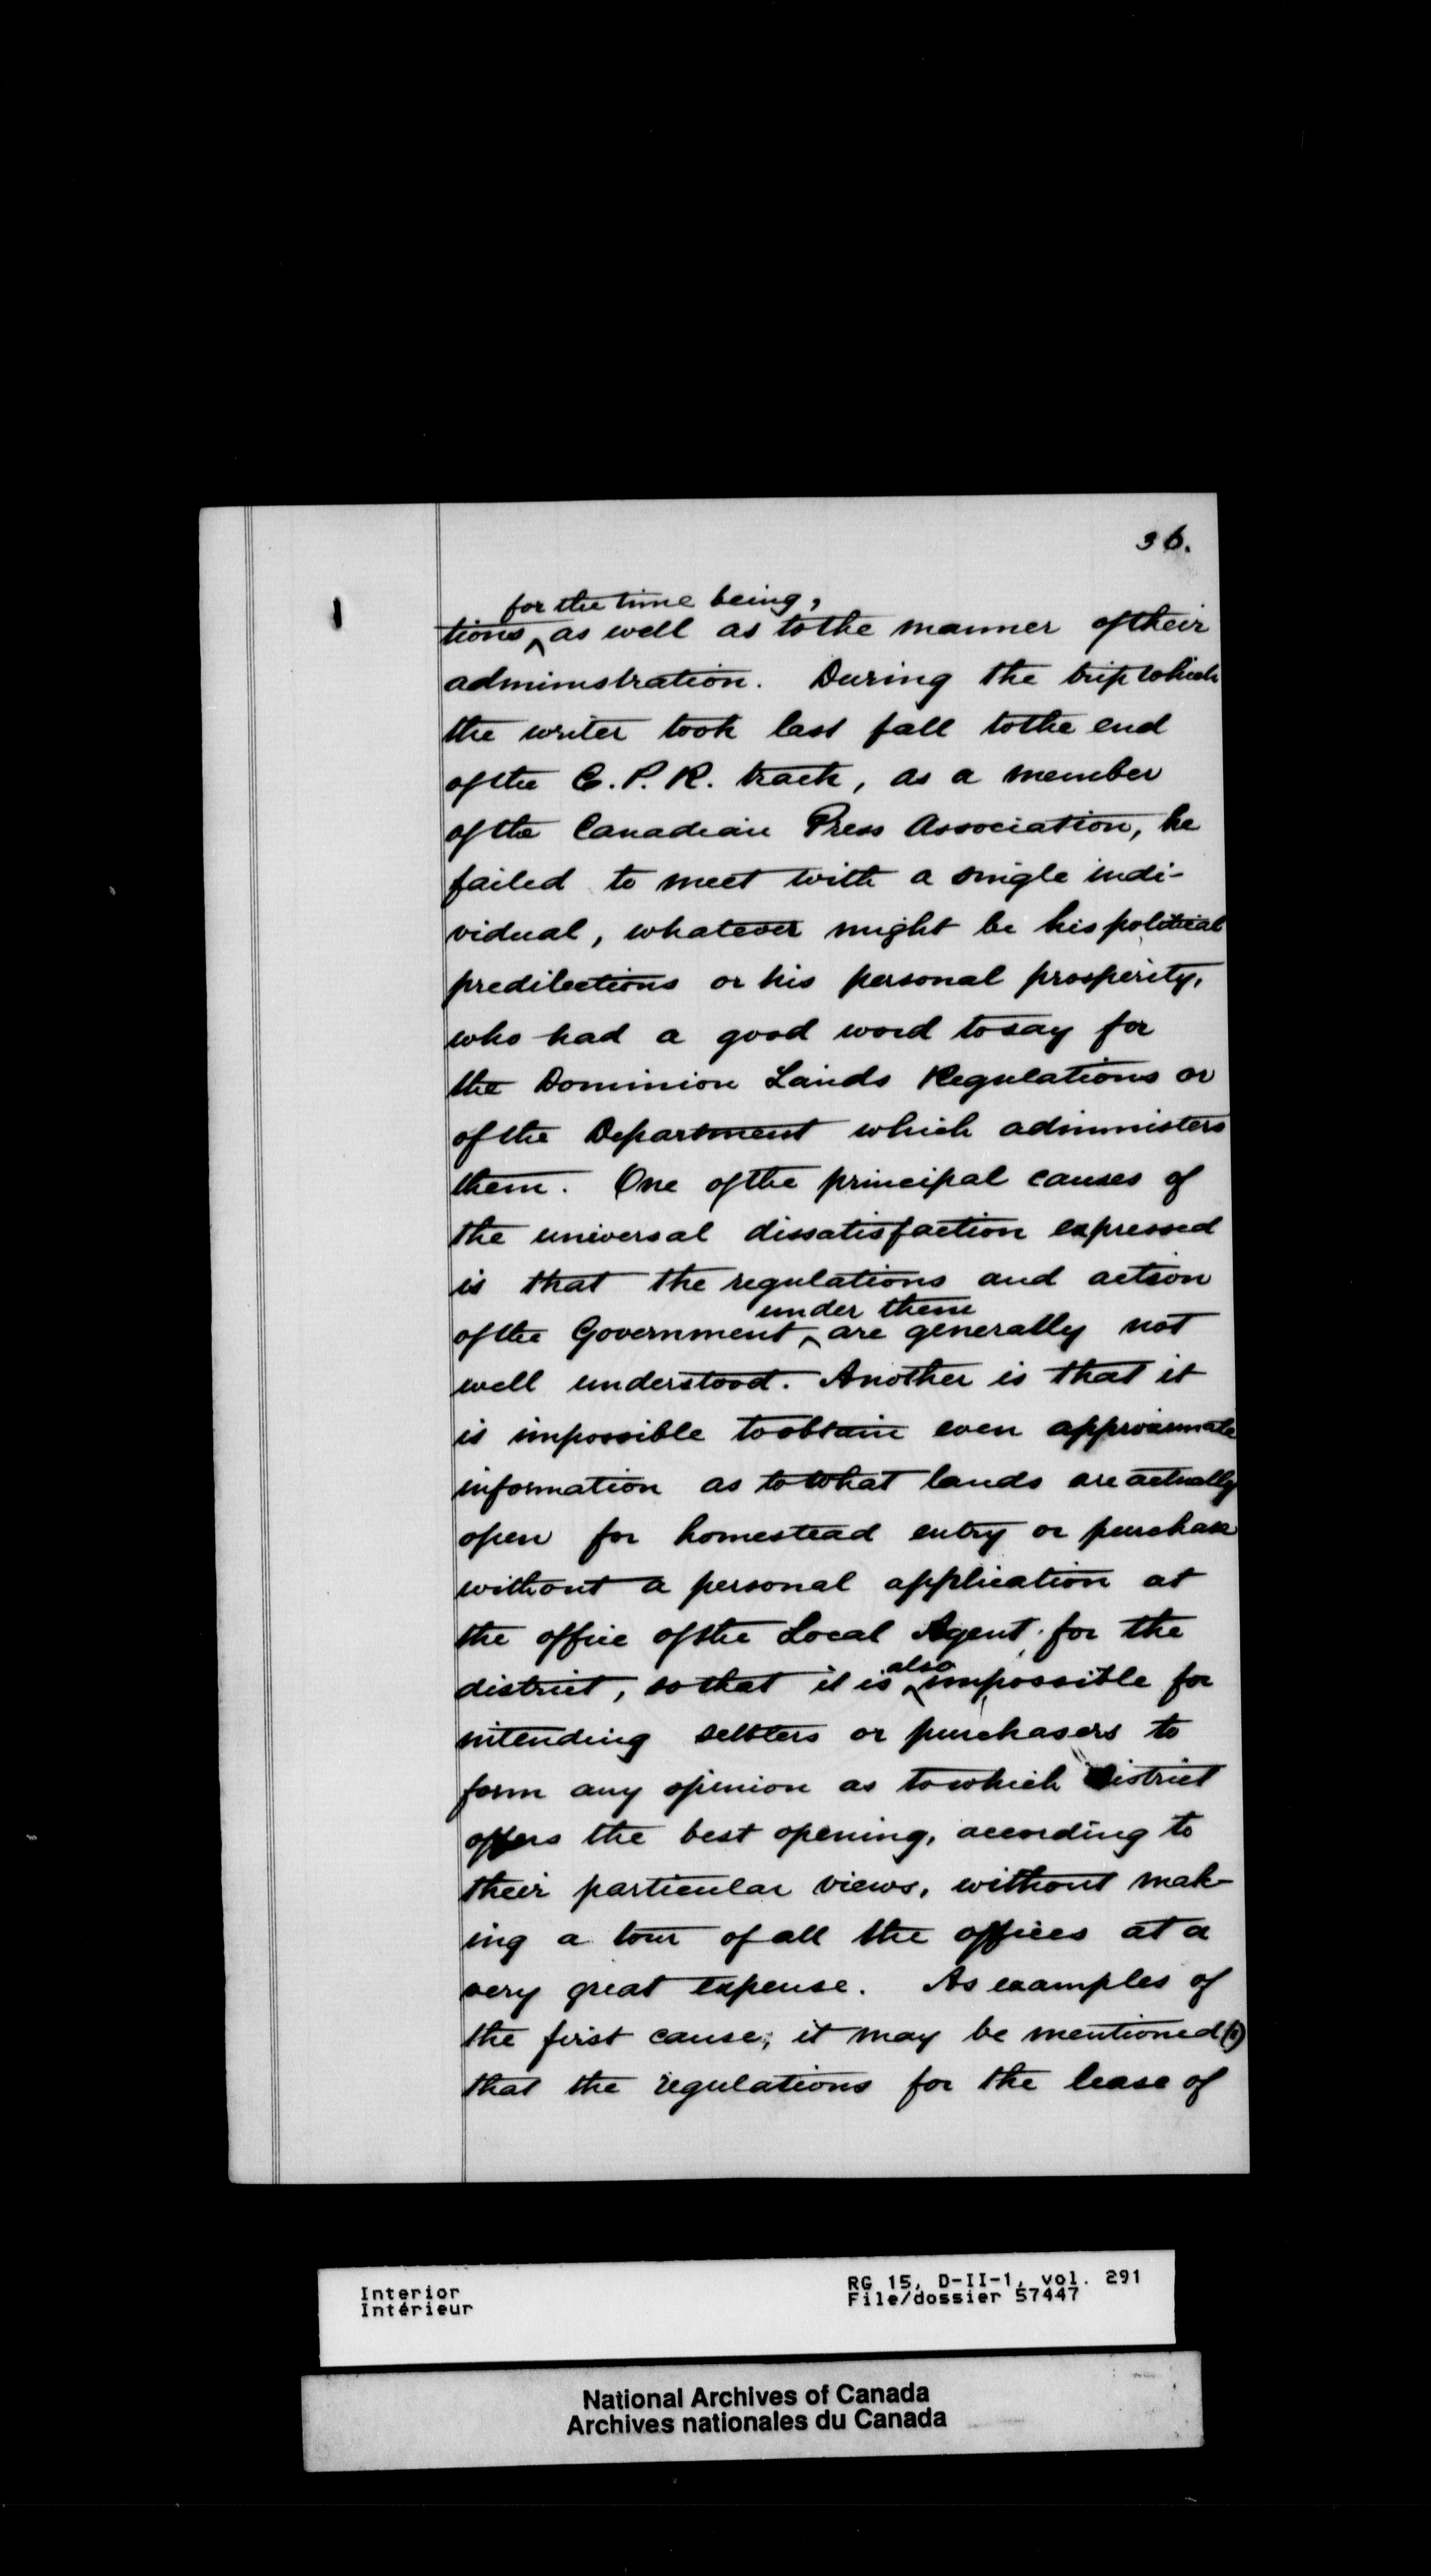 36.
for the time being,
tions ^ as well as to the manner of their
administration. During the trip which
the writer took last fall to the end
of the C.P.R. track, as a member
of the Canadian Press Association, he
failed to meet with a single indi-
vidual, whatever might be his political
predilections or his personal prosperity,
who had a good word to say for
the Dominion Lands Regulations or
of the Department which administers
them. One of the principal causes of
the universal dissatisfaction expressed
is that the regulations and action
under them
of the Government ^ are generally not
well understood. Another is that it
is impossible to obtain even approximate
information as to what lands are actually
open for homestead entry or purchase
without a personal application at
the office of the Local Agent for the
also
district, so that it is ^ impossible for
intending settlers or purchasers to
form any opinion as to which District
offers the best opening, according to
their particular views, without mak-
ing a tour of all the offices at a
very great expense. As examples of
the first cause, it may be mentioned (1)
that the regulations for the lease of
Interior
Intérieur
RG 15, D-II-1, vol. 291
File/dossier 57447
National Archives of Canada
Archives nationales du Canada